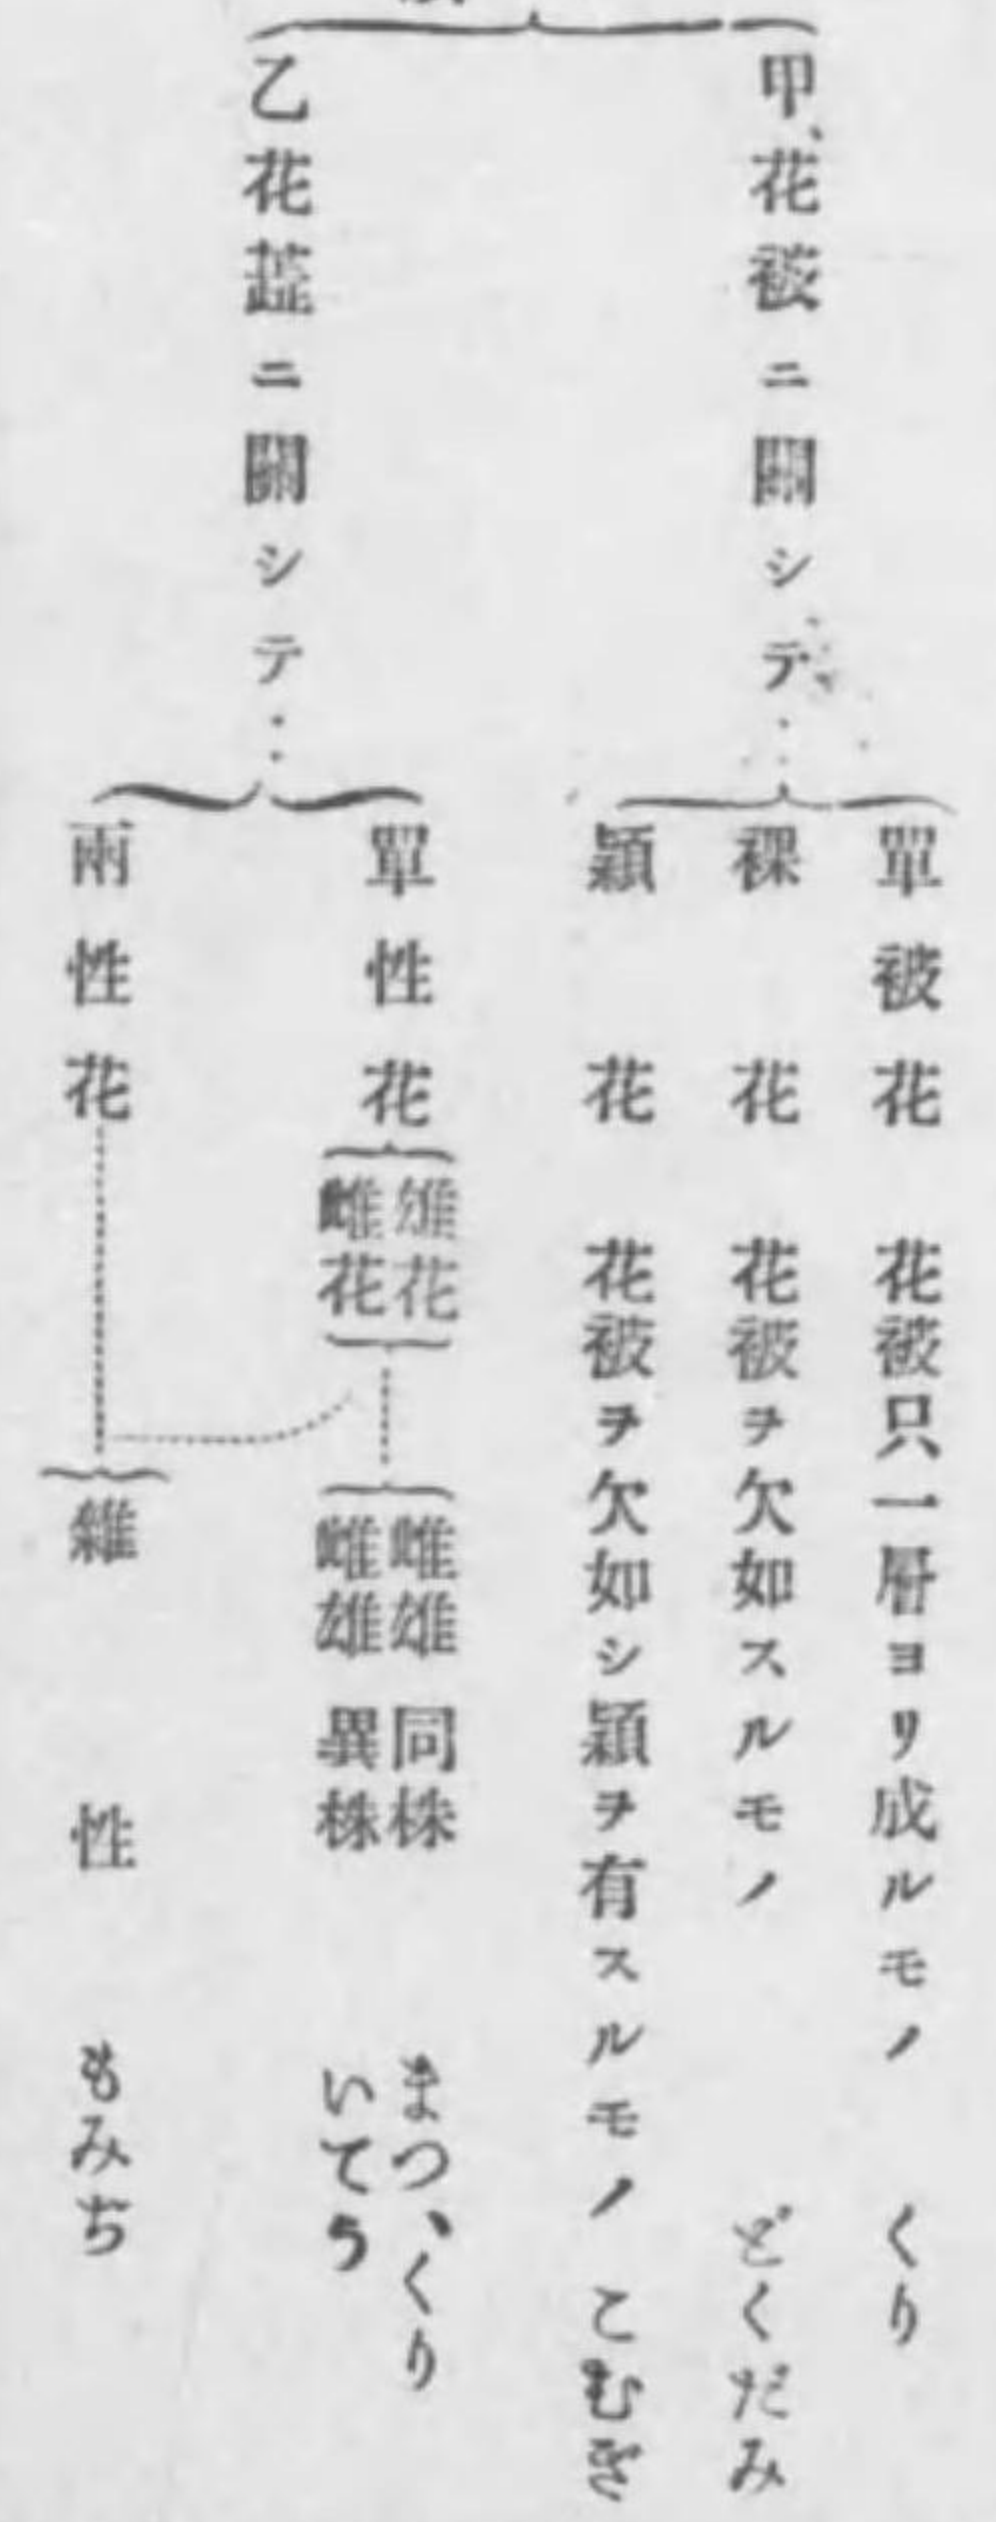 甲、花被ニ關シテ…
單被花 花被只一層ヨリ成ルモノ くり
裸花 花被ヲ欠如スルモノ どくだみ
穎花 花被ヲ欠如シ穎ヲ有スルモノ こむぎ
乙花蕋ニ關シテ…
單性花
雄花
雌花
雌雄同株 まつ、くり
雌雄異株 いてう
兩性花
雜性 もみぢ